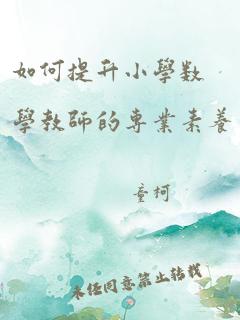 如何提升小學数
學教師的專業素養
童柯
未经同意禁止转载